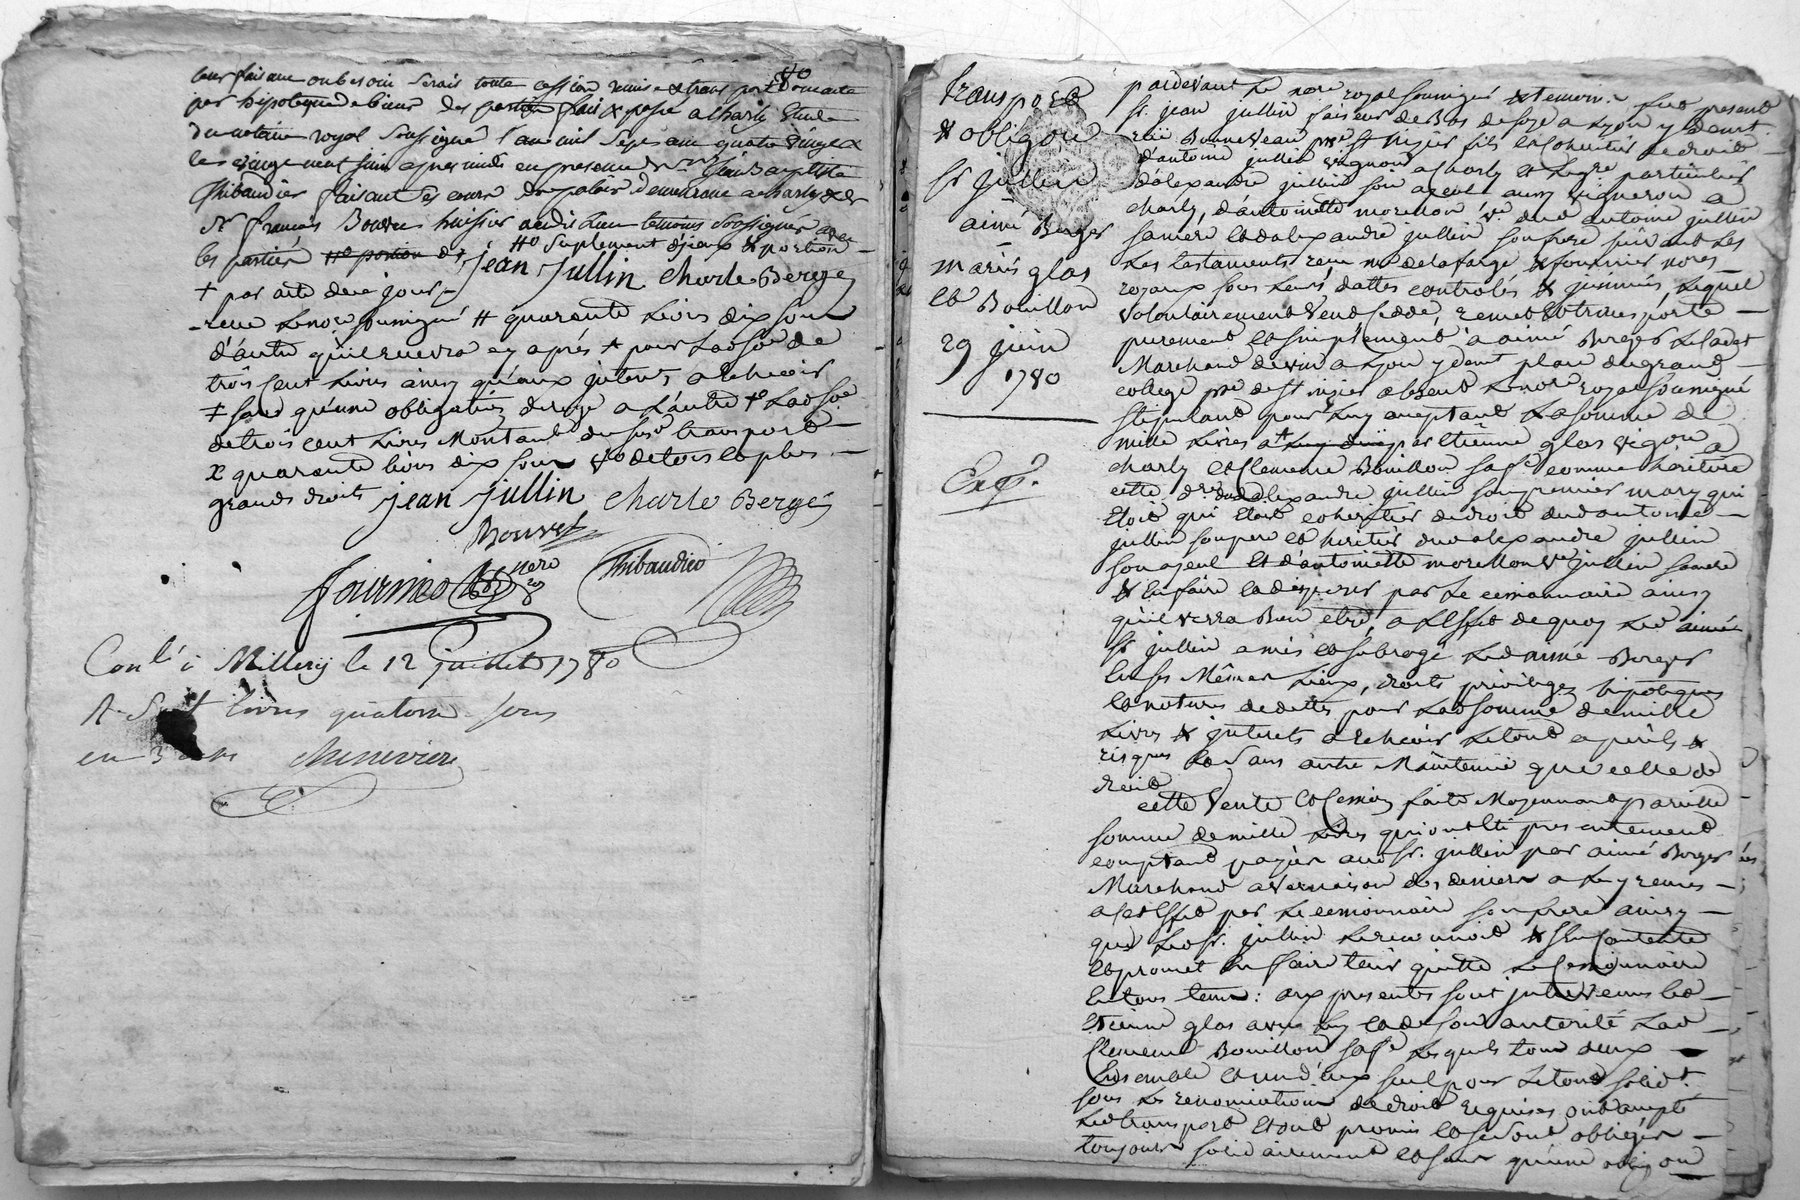 leur faisant au besoin serait toute cession remise & transport
par hipoteque de biens des fait & passé a Charly Etude
du notaire royal soussigné l'an mil sept cent quatre vingt &
le vingt neuf juin apres midi en presence de Jean Baptiste
Thibaudier faisant es cours de palais demeurant a charly & de
Sr françois Bouvet huissier audit lieu temoins soussignés avec
les parties
jean jullin charle Berger
+ par acte de ce jour
reçue le nore soussigné # quarante livres dix sous
d'autre qu'il recevra cy après + pour lad. so͞e de
trois cent livres ainsy qu'aux interets a échoir
‡ sans qu'une obligation deroge a l'autre lad. so͞e
de trois cent livres montant du susd. transport
x quarante livres dix sous
grands droits jean jullin charle Berger
Bouvet
Fournier nore Thibaudier
Conlé à Millery le 12 juillet 1780
R. Sept livres quatorze sous
en 3 Cheneviere
transport
& obligon
sr jullin
aimé Berger
mariés glas
et Bouillon
29 juin
1780
Exp.
pardevant le nore royal soussigné & temoins fut present
sr. jean jullin faiseur de Bas de soye a Lyon y demt.
rüe Bonneveau psse st nizier fils et coheritier de droit
d'antoine jullin vigneron a charly et legre particulier
d'alexandre jullin son ayeul aussy vigneron a
charly, d'antoinette morellon ve dud. antoine jullin
sa mere et d'alexandre jullin son frere suivant les
les testaments reçu me delafarge & fournier nores
royaux sous leurs dattes controlés & jnsinués, lequel
volontairement vend cedde, remet et transporte
purement et simplement à aimé Berger le cadet
Marchand de vin a Lyon y demt place du grand
college psse de st nizier absent le nore royal soussigné
stipulant pour luy acceptant la somme de
mille livres par Etienne glas vigon a
charly et Clemence Bouillon sa fe comme héritiere
cette dre dud. alexandre jullin son premier mary qui
étoit qui étoit coheritier de droit dud. antoine
jullin son pere et heritier dud. alexandre jullin
son ayeul et d'antoinette morellon ve jullin sa mere
& en faire et disposer par le cessionnaire ainsy
qu'il verra bon etre, a l'effet de quoy led.
sr jullin a mis et subrogé led. aimé Berger
en ses Mêmes lieux, droits privileges hipoteques
et natures de dettes pour lad. somme de mille
livres & interets a échoir le tout a perils &
risques et sans autre Maintenue que celle de
droit
cette vente et cession faite Moyennant pareille
somme de mille livres qui ont été presentement
comptant payés aud. sr. jullin par aimé Berger
Marchand a vernaison des deniers a luy remis
a cet effet par le cessionnaire son frere ainsy
que led. sr. jullin le reconnoit & s'en contente
et promet en faire tenir quitte le cessionnaire
en tous tems: aux presentes sont intervenus led.
Etienne glas avec luy et de son autorité lad.
Clemence Bouillon sa fe lesquels tous deux
Ensemble et un d'eux seul pour le tout solidt.
sous les renonciations de droit requises ont accepté
led. transport et ont promis et se sont obligés
toujours solidairement et sans qu'une obligon